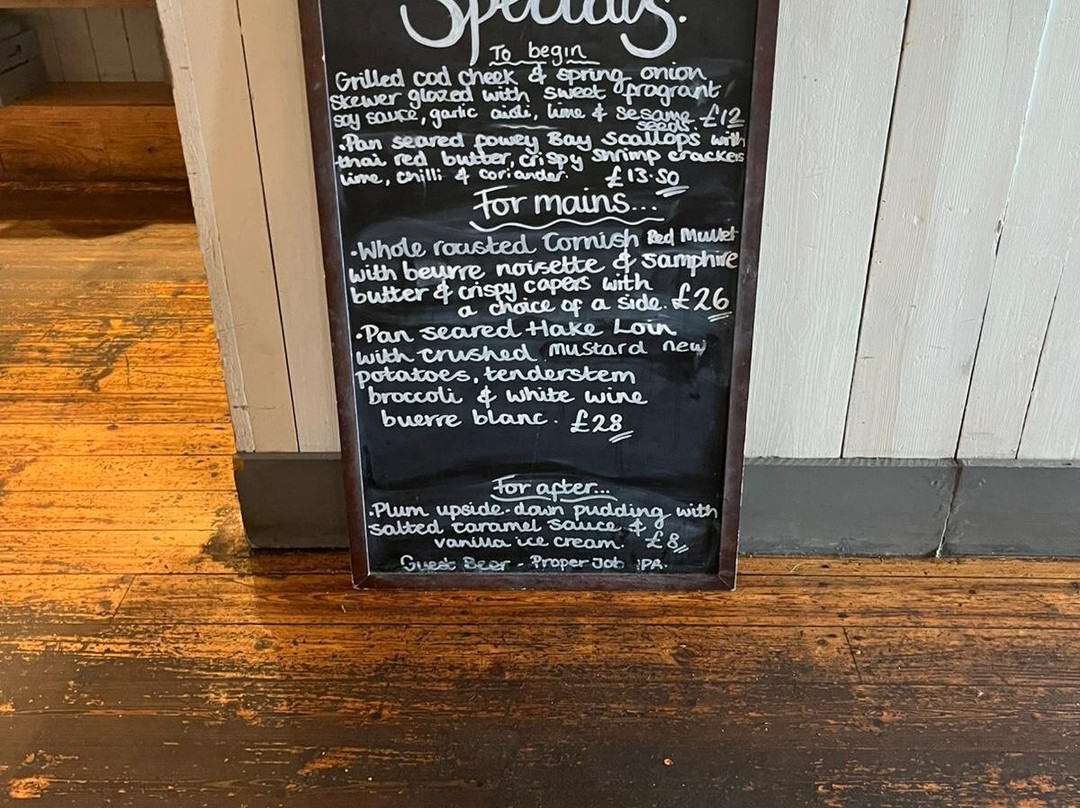 Specials.
To begin
Grilled cod cheek & spring onion
skewer glazed with sweet fragrant
soy sauce, garlic aioli, lime & sesame seeds. £12
·Pan seared Fowey Bay Scallops with
thai red butter, crispy shrimp crackers
lime, chilli & coriander. £13.50
For mains...
·Whole roasted Cornish Red Mullet
with beurre noisette & samphire
butter & crispy capers with
a choice of a side. £26
·Pan seared Hake Loin
with crushed mustard new
potatoes, tenderstem
broccoli & white wine
buerre blanc. £28
For after...
·Plum upside-down pudding with
salted caramel sauce &
vanilla ice cream. £8
Guest Beer - Proper Job IPA.